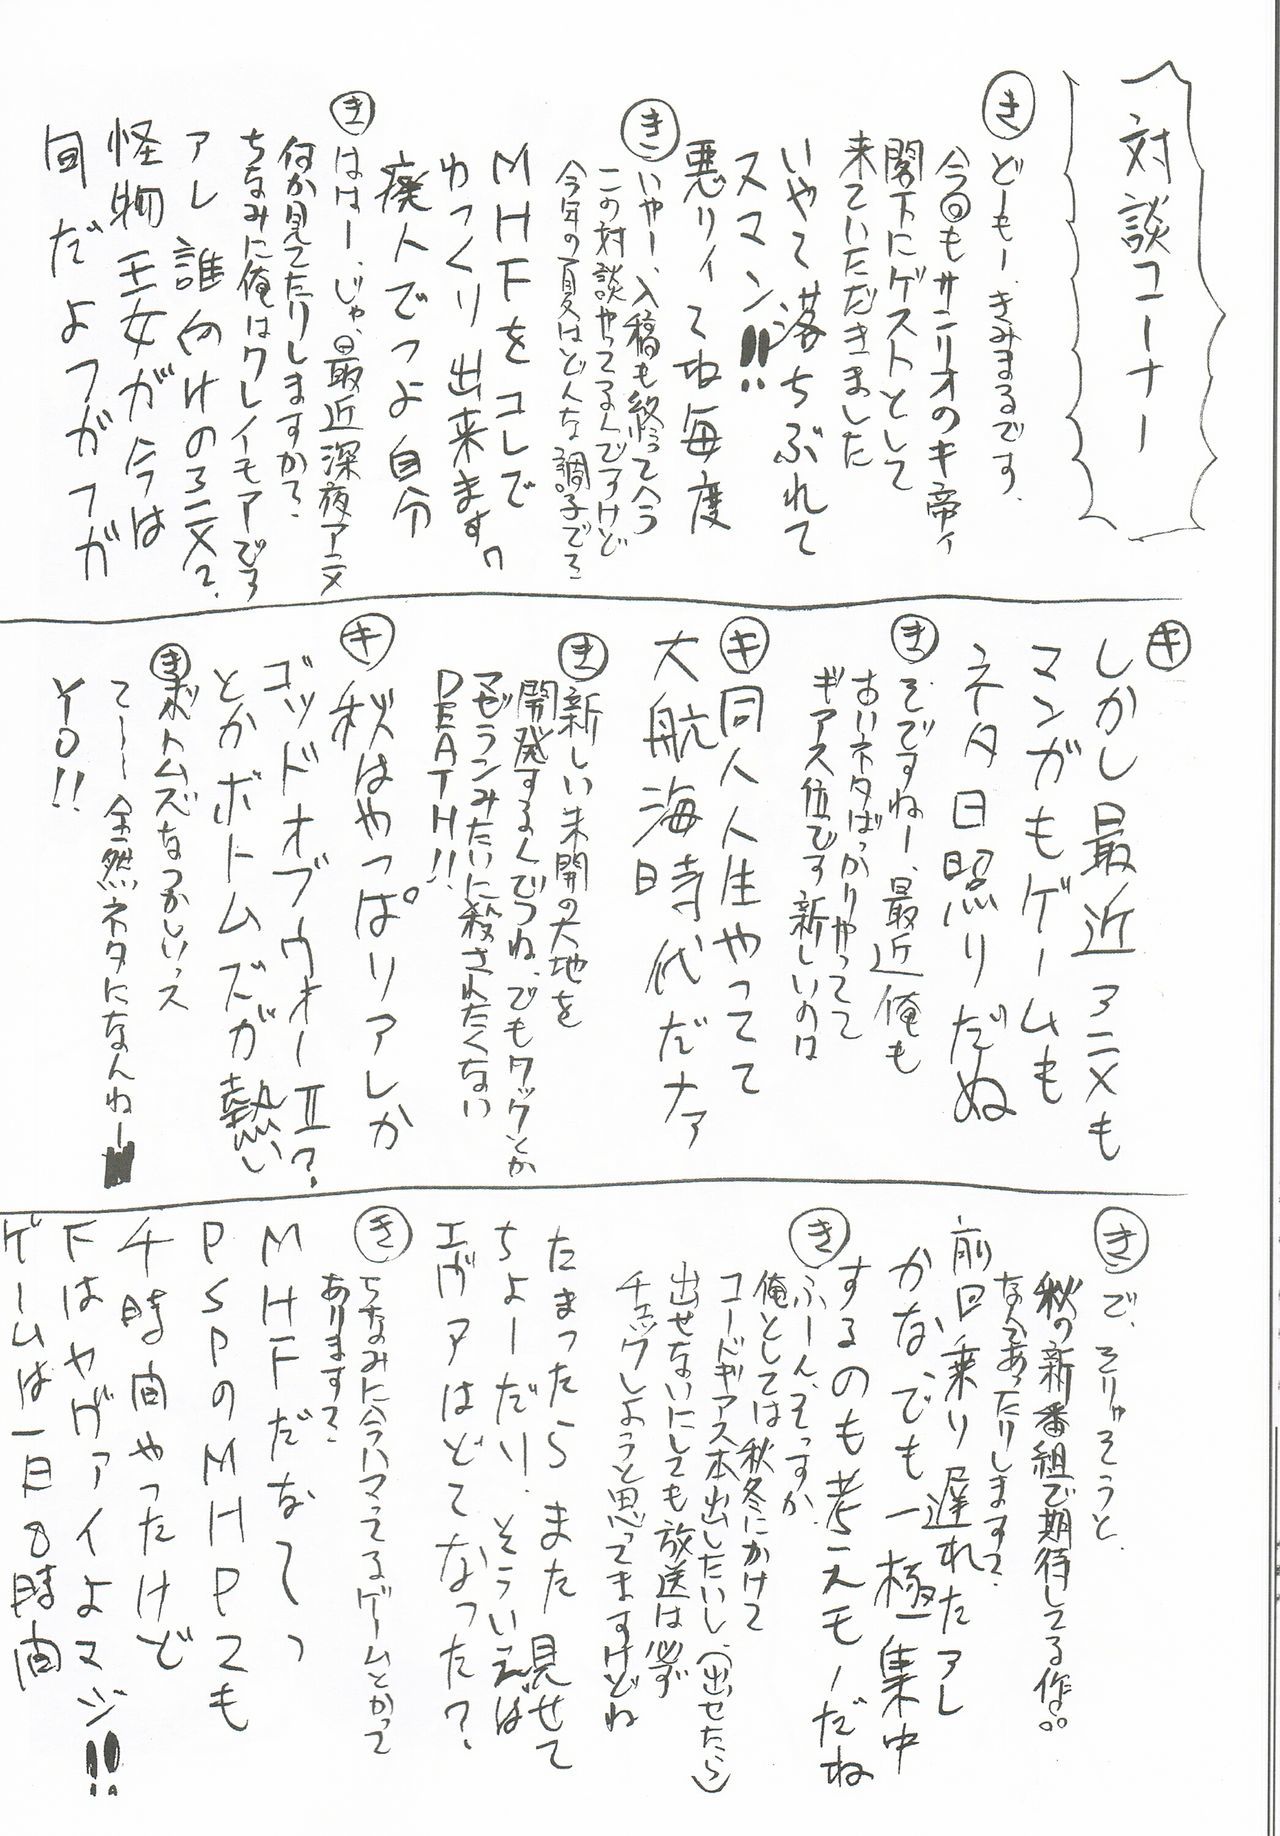 対談コーナー
き どーもー、きみまるです、
今回もサンリオのキ帝ィ
閣下にゲストとして
来ていただきました
いやて落ちぶれて
スマン!!
悪リィてね毎度
き いやー、入稿も終って今
この対談やってるんですけど
今年の夏はどんな調子でろ
MHFをコレで
ゆっくり出来ます。
廃人でつよ自分
き はは一、じゃ、最近深夜アニメ
何か見てたりしますか?
ちなみに俺はクレイモアです
アレ誰向けのアニメ?
怪物王女が今は
旬だよフガフガ
キ しかし最近アニメも
マンガもゲームも
ネタ日照りだぬ
き そですねー、最近俺も
古いネタばっかりやってて
ギアス位です新しいのは
キ 同人人生やってて
大航海時代だナァ
き 新しい未開の大地を
開発するんでつね、でもクックとか
マゼランみたいに殺されたくない
DEATH!!
キ 秋はやっぱりアレか
ゴッドオブウォーII?
とかボトムズが熱い
き ボトムズなつかしいっス
てーー全然ネタになんねー
YO!!
き で、そりゃそうと、
秋の新番組で期待してる作品
なんてあったりします?
前回乗り遅れたアレ
かな、でも一極集中
するのも考えモノだね
き ふーん、そっすか、
俺としては秋冬にかけて
コードギアス本出したいし、(出せたら)
出せないにしても放送は必ず
チェックしようと思ってますけどね
たまったらまた見せて
ちょーだい、そういえば
エヴァはどてなった?
き ちなみに今ハマってるゲームとかって
あります?
MHFだなてっ
PSPのMHP2も
千時間やったけど
Fはヤヴァイよマジ!!
ゲームは一日8時間